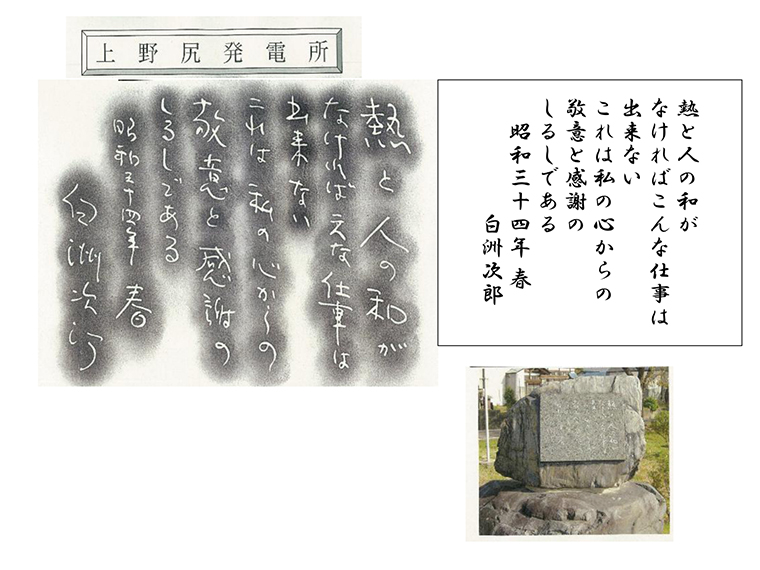 上野尻発電所
熱と人の和が
なければこんな仕事は
出来ない
これは私の心からの
敬意と感謝の
しるしである
昭和三十四年 春
白洲次郎
熱と人の和が
なければこんな仕事は
出来ない
これは私の心からの
敬意と感謝の
しるしである
昭和三十四年 春
白洲次郎